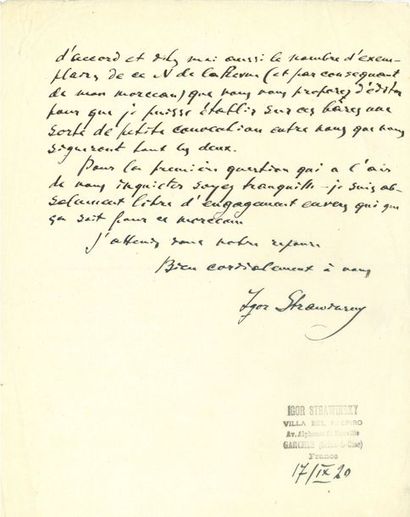 d'accord et dites moi aussi le nombre d'exem-
plaires de ce N de la Revue (et par consequant
de mon morceau) que vous vous proposez d'éditer
pour que je puisse établir sur ces bases une
sorte de petite convention entre nous que nous
signerons tout les deux.
Pour la première question qui a l'air
de vous inquieter soyez tranquille – je suis ab-
solument libre d'engagement envers qui que
ça soit pour ce morceau
J'attends donc votre reponse
Bien cordialement à vous
Igor Strawinsky
IGOR STRAWINSKY
VILLA BEL RESPIRO
Av. Alphonse de Neuville
GARCHES
France
17/IX 20